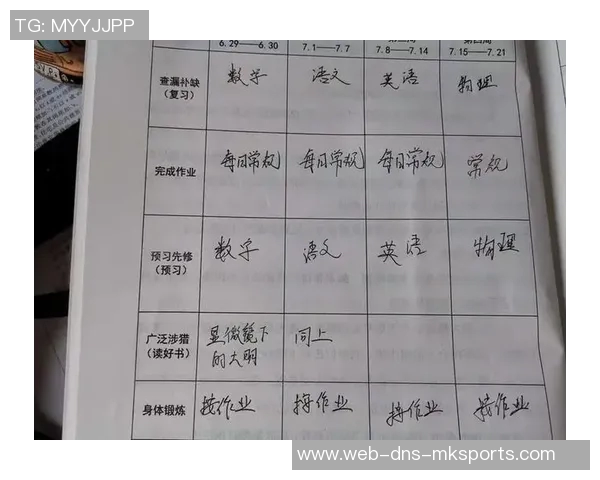 TG: MYYJJPP
6.29——6.30 7.1——7.7 7.8——7.14 7.15——7.21
查漏补缺
（复习）
数学 语文 英语 物理
完成作业
每日常规 每日常规 每日常规 常规
预习先修
（预习）
数学 语文 英语 物理
广泛涉猎
（读好书）
显微镜下
的大明
同上
身体锻炼
按作业 按作业 按作业 按作业
www-web-dns-mksports.com